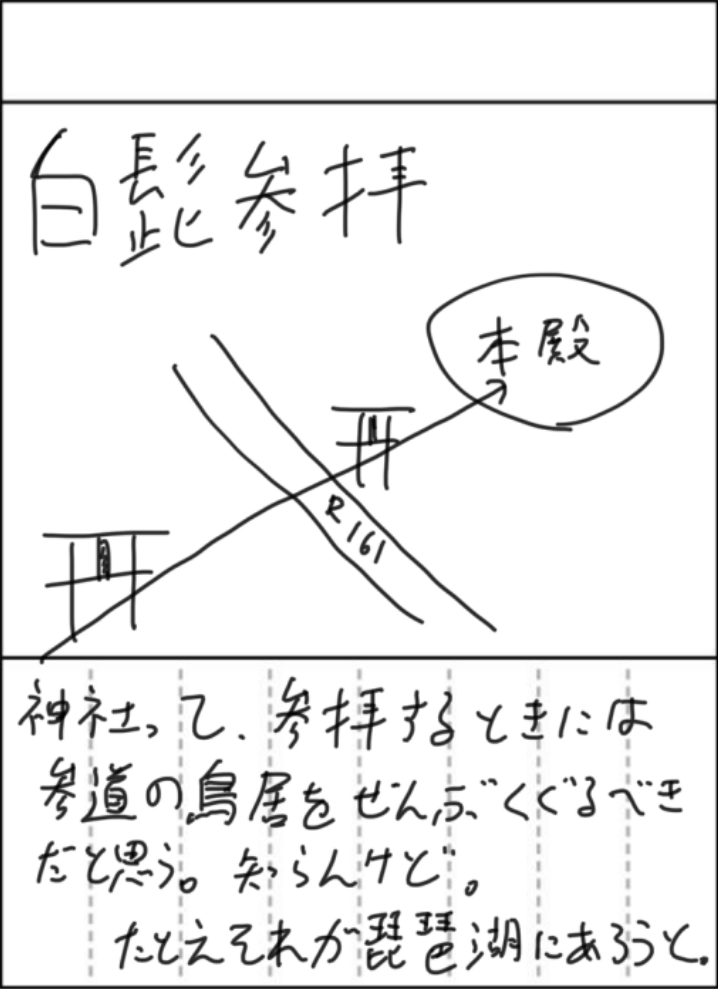 白髭参拝
本殿
R161
神社って、参拝するときには
参道の鳥居をぜんぶくぐるべき
だと思う。知らんけど。
たとえそれが琵琶湖にあろうと。